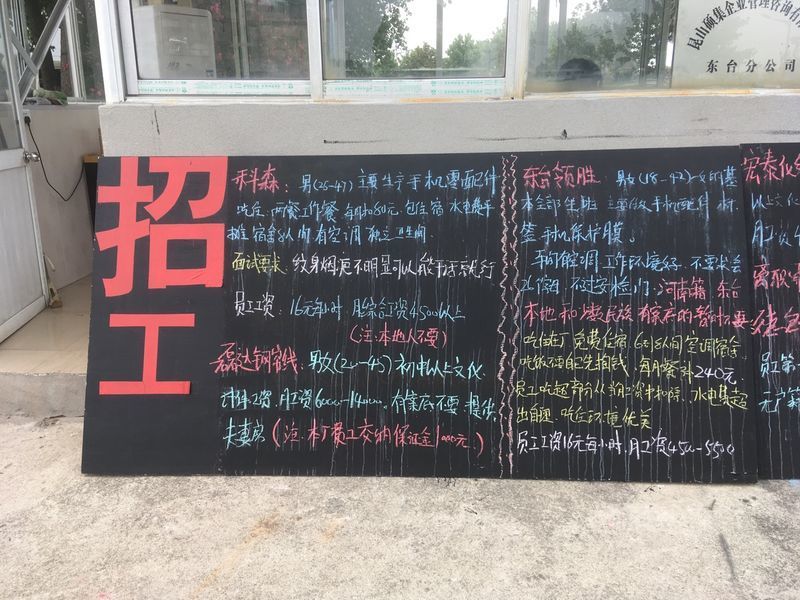 昆山硕集企业管理咨询有
东台分公司
招工
科森：男(25-47)主要生产手机零配件
吃住：两餐工作餐 每月扣80元，包住宿 水电费平
摊 宿舍 人间 有空调 独立卫生间.
面试要求：纹身烟疤不明显可以
员工工资：16元每小时，月综合工资4500以上
(注：本地人不要)
磊达钢帘线：男女(20-45)初中以上文化
计件工资，月工资6000-14000，有案底不要，提供
夫妻房(注：本厂员工交纳保证金1000元.)
东台领胜：男女(18-42)
本全部坐班 主要做手机配件 材.
签 手机保护膜。
车间空调 工作环境好，不要求会
不过安检门. 河南籍 东台
本地 和 少数民族 有案底的暂时不要
吃住在厂 免费住宿，6-8人间空调宿舍
吃饭不要自己先掏钱，每月餐补240元.
员工吃超部分从当月工资中扣除，水电费超
出自理，吃住环境优美
员工工资16元每小时.月工资4500-5500
宏泰化
以上文化
月工资4
离职
员工第一
元 户籍